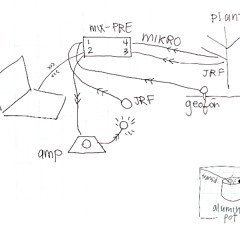 MIX-PRE
plan
1 4
2 3
MIKRO
JRF
geofon
JRF
amp
alumin
pot